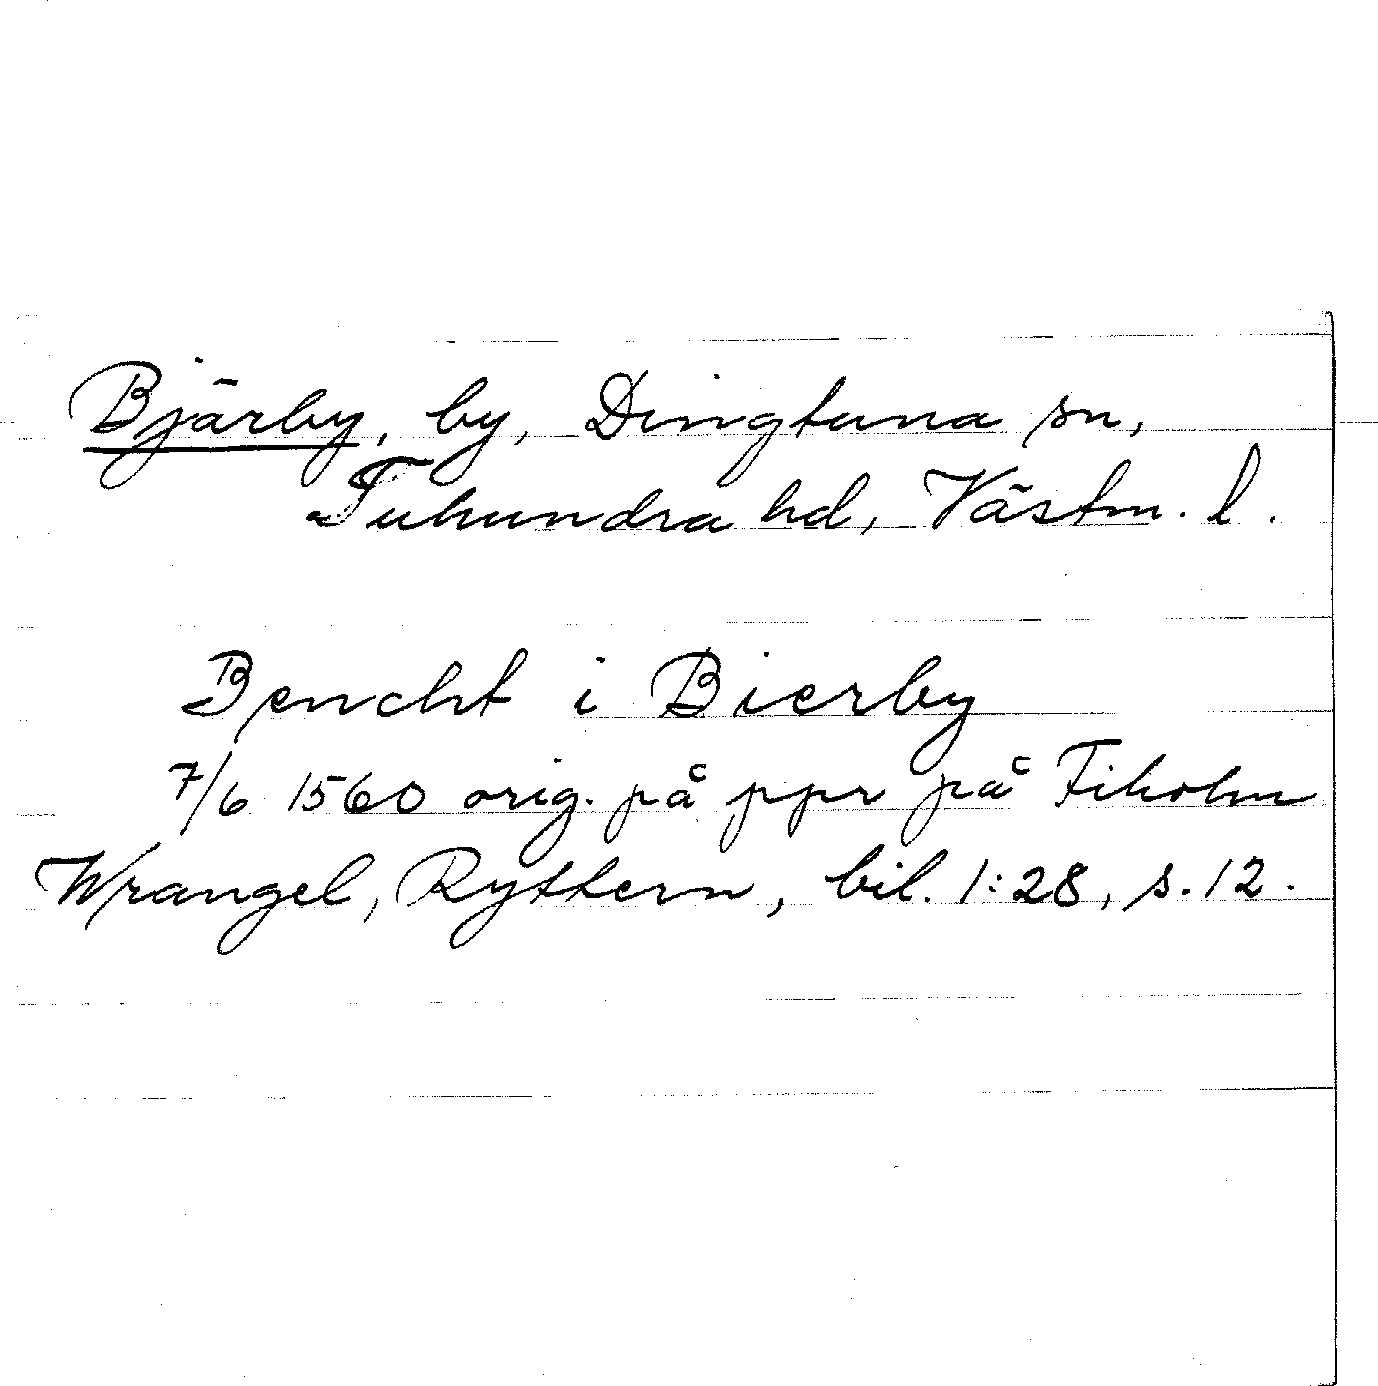 Bjärby, by, Dingtuna sn,
Tuhundra hd, Västm. l.
Bencht i Bierby
7/6 1560 orig. på ppr på Fiholm
Wrangel, Ryttern, bil. 1:28, s. 12.